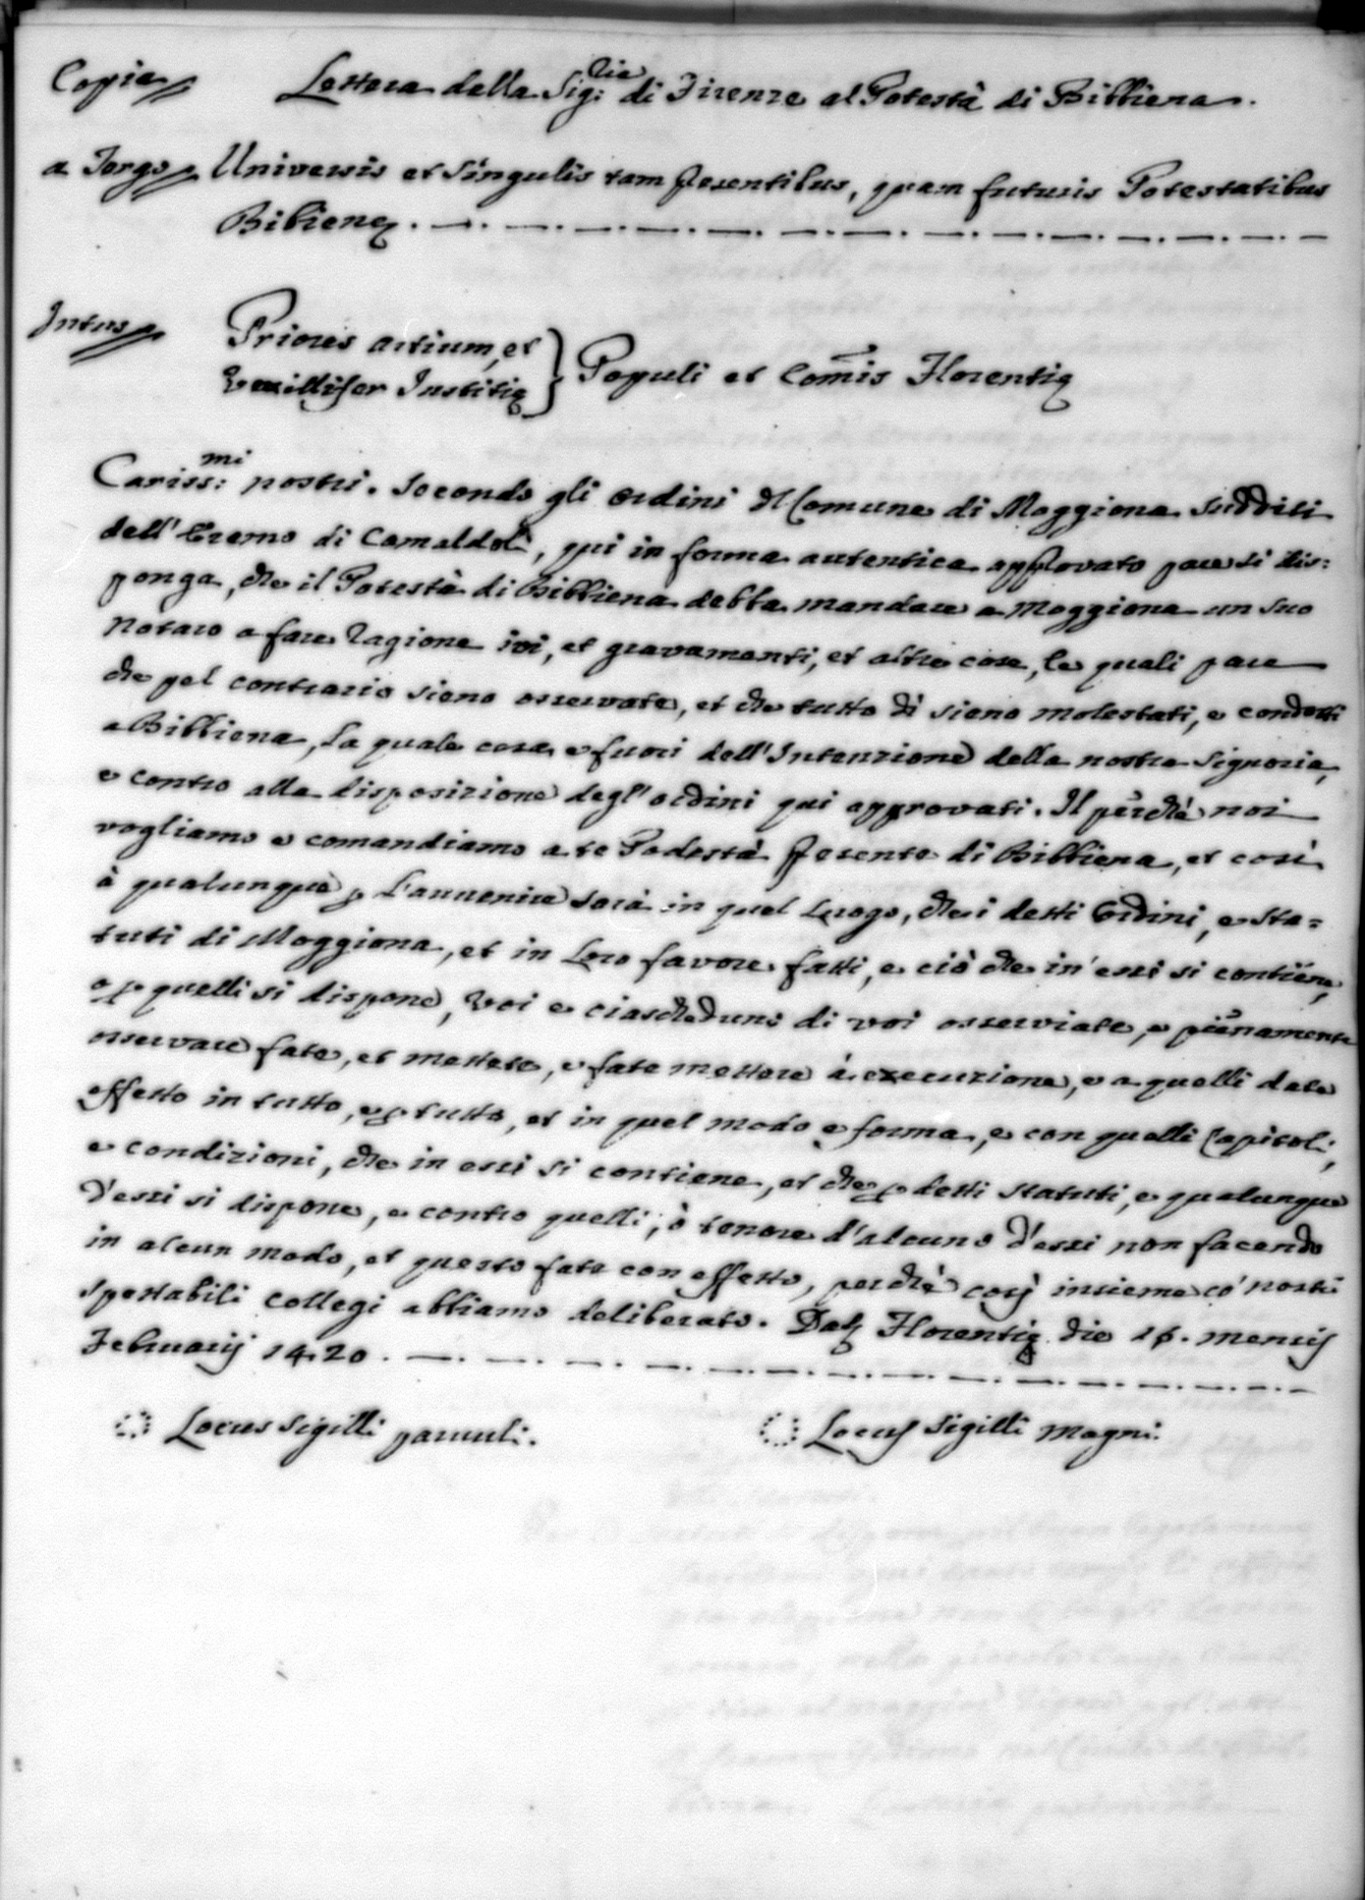 Copia Lettera della Sig:ria di Firenze al Potestà di Bibbiena.
a Tergo Universis et Singulis tam presentibus, quam futuris Potestatibus
Bibienę.
Intus Priores artium, et
Vexillifer Iustitię } Populi et Com̄is Florentię
Cariss:mi nostri. Secondo gli ordini del Comune di Moggiona sudditi
dell'Eremo di Camaldoli, qui in forma autentica approvato pare si dis:
ponga, che il Potestà di Bibbiena debba mandare a Moggiona un suo
Notaro a fare ragione ivi, et gravamenti, et altre cose, le quali pare
che pel contrario sieno osservate, et che tutto dì sieno molestati, e condotti
a Bibbiena, la quale cosa e fuori dell'Intenzione della nostra Signoria,
e contro alla disposizione degl'ordini qui approvati. Il perchè noi
vogliamo e comandiamo a te Podestà presente di Bibbiena, et così
à qualunque p l'auuenire sarà in quel luogo, che i detti Ordini, e Sta=
tuti di Moggiona, et in loro favore fatti, e ciò che in'essi si contiene,
o p quelli si dispone, Voi e ciascheduno di voi osserviate, e pienamente
osservare fate, et mettete, e fate mettere à execuzione, e a quelli date
effetto in tutto, e p tutto, et in quel modo e forma, e con quelli Capitoli,
e condizioni, che in essi si contiene, et che p detti statuti, e qualunque
d'essi si dispone, e contro quelli, ò tenore d'alcuno d'essi non facendo
in alcun modo, et questo fate con effetto, perchè così insieme co' nostri
spettabili collegi abbiamo deliberato. Datę Florentię die mensis
Februarij 1420.
Locus Sigilli paruuli. Locus Sigilli magni.